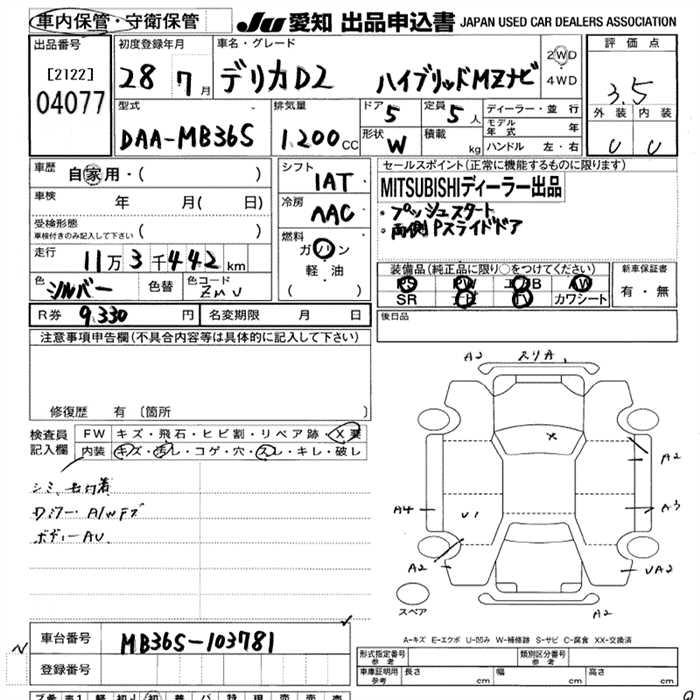 車内保管・守衛保管
JU 愛知 出品申込書 JAPAN USED CAR DEALERS ASSOCIATION
出品番号
[2122]
04077
初度登録年月
28 7月
車名・グレード
デリカD2 ハイブリッドMZナビ
2WD
4WD
評価点
3.5
外装 内装
U U
型式
DAA-MB36S
排気量
1,200 CC
ドア 5
形状 W
定員 5人
積載 kg
ディーラー・並行
モデル年式 年
ハンドル 左・右
車歴 自家用・( )
車検 年 月( 日)
受検形態
車検付きのみ記入して下さい ( )
走行 11万3千442km
色 シルバー 色替 色コード ZMV
シフト
1AT
冷房
AAC
燃料
ガソリン
軽・油
( )
セールスポイント(正常に機能するものに限ります)
MITSUBISHIディーラー出品
・プッシュスタート
・両側Pスライドドア
装備品(純正品に限り○をつけてください)
PS PW エアB AW
SR ナビ TV カワシート
新車保証書
有・無
R券 9,330 円 名変期限 月 日
後日品
注意事項申告欄(不具合内容等は具体的に記入して下さい)
修復歴 有 〔箇所 〕
検査員記入欄
FW キズ・飛石・ヒビ割・リペア跡・X要
内装 キズ・汚レ・コゲ・穴・スレ・キレ・破レ
シミ、
ボディーAU.
A2 スリA,
A2
A3
A4
U1
A2
UA2
A2
スペア
A-キズ E-エクボ U-凹み W-補修跡 S-サビ C-腐食 XX-交換済
車台番号 MB36S-103781
登録番号
形式指定番号 参考
類別区分番号 参考
車庫証明用 参考 長さ cm 幅 cm 高さ cm